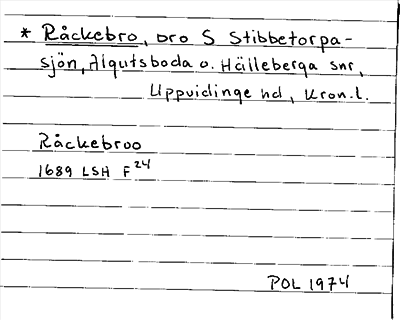 * Råckebro, bro S Stibbetorpa-
sjön, Algutsboda o. Hälleberga snr,
Uppvidinge hd, Kron.l.
Råckebroo
1689 LSH F24
POL 1974